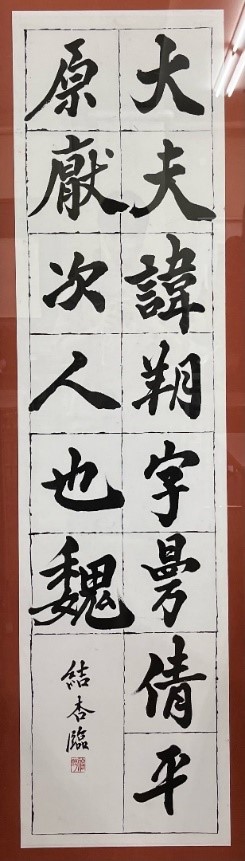 大夫諱朔字曼倩平
原厭次人也魏
結杏臨